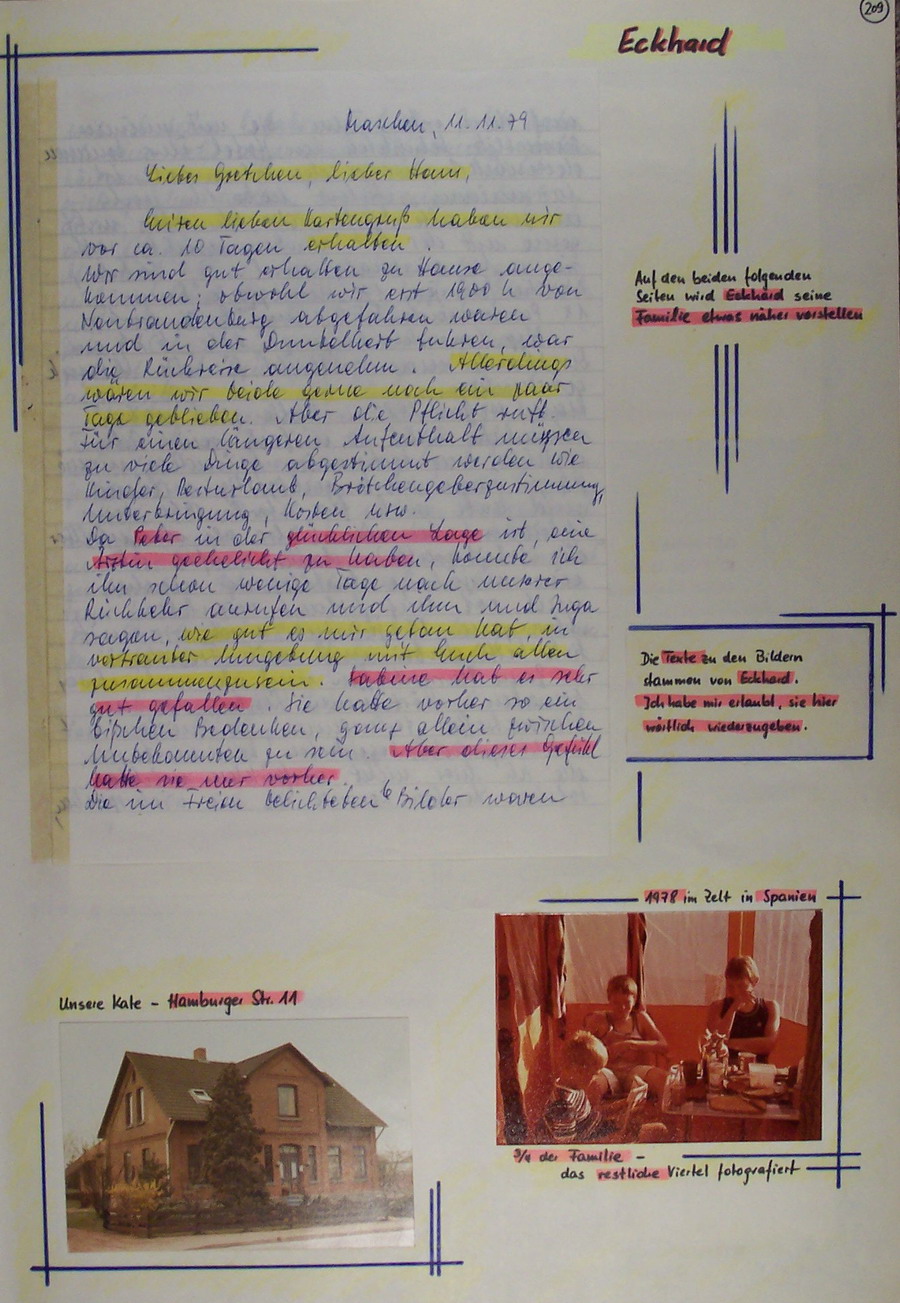 209
Eckhard
Maschen, 11.11.79
Liebes Gretchen, lieber Hans,
Euren lieben Kartengruß haben wir
vor ca. 10 Tagen erhalten.
Wir sind gut erhalten zu Hause ange-
kommen; obwohl wir erst 1900 h von
Neubrandenburg abgefahren waren
und in der Dunkelheit fuhren, war
die Rückreise angenehm. Allerdings
wären wir beide gerne noch ein paar
Tage geblieben. Aber die Pflicht ruft.
Für einen längeren Aufenthalt müssen
zu viele Dinge abgestimmt werden wie
Kinder, Resturlaub, Brötchengeberzustimmung,
Unterbringung, Kosten usw.
Da Peter in der glücklichen Lage ist, eine
Ärztin geehelicht zu haben, konnte ich
ihn schon wenige Tage nach unserer
Rückkehr anrufen und ihm und Inga
sagen, wie gut es mir getan hat, in
vertrauter Umgebung mit Euch allen
zusammenzusein. Sabine hat es sehr
gut gefallen. Sie hatte vorher so ein
bißchen Bedenken, ganz allein zwischen
Unbekannten zu sein. Aber dieses Gefühl
hatte sie nur vorher.
Die im Freien belichteten 6 Bilder waren
Auf den beiden folgenden
Seiten wird Eckhard seine
Familie etwas näher vorstellen
Die Texte zu den Bildern
stammen von Eckhard.
Ich habe mir erlaubt, sie hier
wörtlich wiederzugeben.
1978 im Zelt in Spanien
3/4 der Familie –
das restliche Viertel fotografiert
Unsere Kate – Hamburger Str. 11